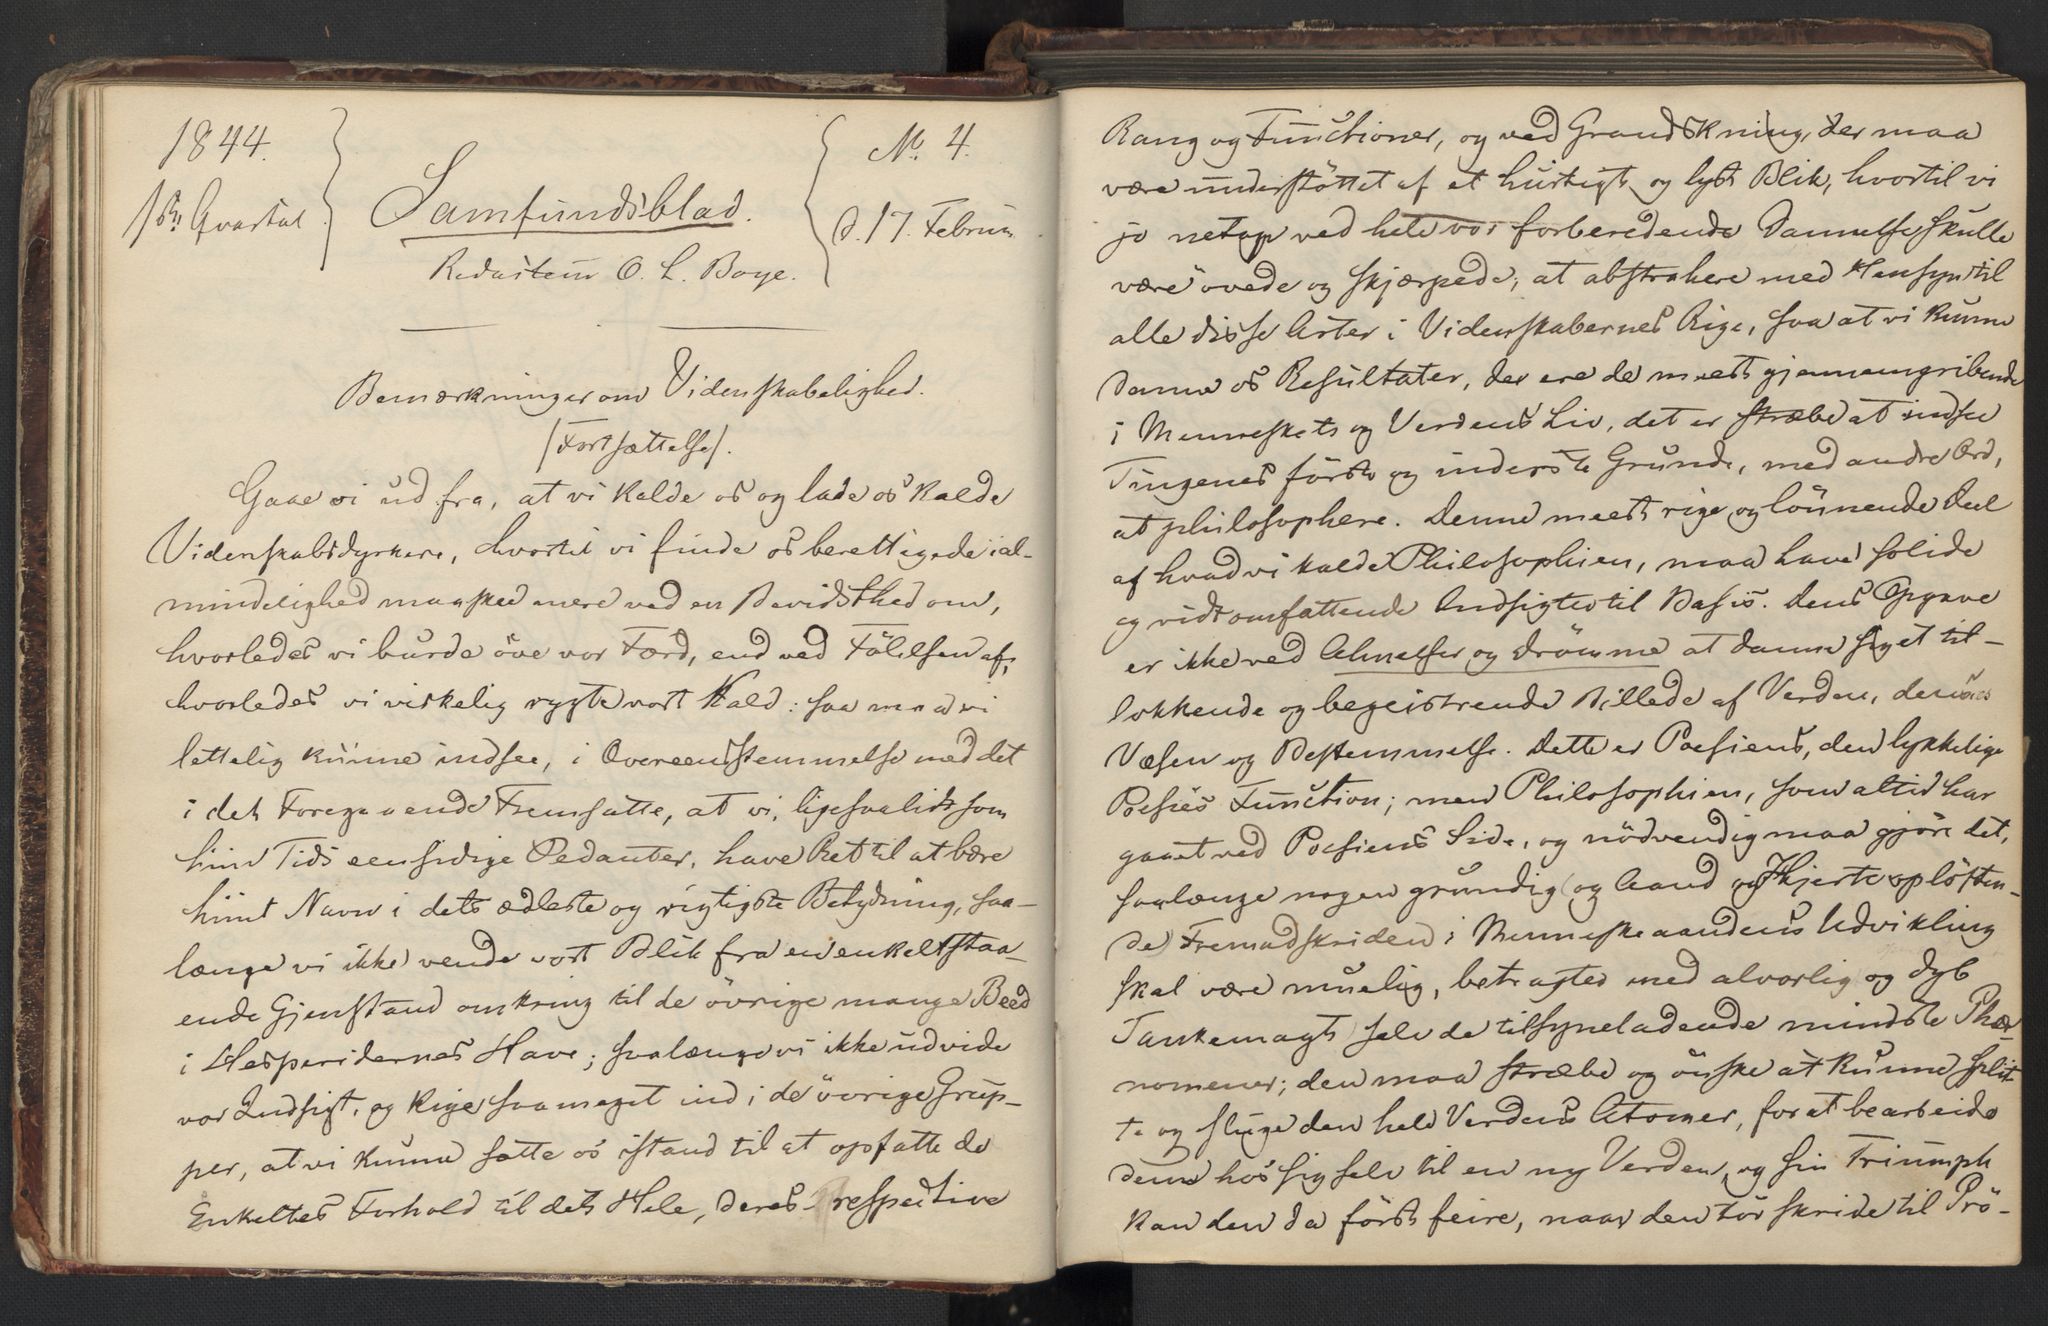 1844.
1ste Qvartal
Samfundsblad.
Redacteur O. L. Boye.
No. 4.
d. 17. Februar
Bemærkninger om Videnskabelighed.
(Fortsættelse).
Gaae vi ud fra, at vi kalde os og lade os kalde
Videnskabsdyrkere, hvortil vi finde os berettigede i al-
mindelighed maaskee mere ved en Bevidsthed om,
hvorledes vi burde öve vor Færd, end ved Fölelsen af,
hvorledes vi virkelig rygte vort Kald: saa maa vi
lettelig kunne indsee, i Overeensstemmelse med det
i det Foregaaende Fremsatte, at vi, ligesaalidt som
hiin Tids eensidige Pedanter, have Ret til at bære
hiint Navn i dets ædleste og rigtigste Betydning, saa-
længe vi ikke vende vort Blik fra en enkelt staa-
ende Gjenstand omkring til de övrige mange Beed
i Hesperidernes Have; saalænge vi ikke udvide
vor Indsigt, og kige saameget ind i de övrige Grup-
per, at vi kunne sætte os istand til at opfatte de
Enkeltes Forhold til det Hele, deres respective
Rang og Functioner, og ved Grandskning, der maa
være understöttet af et hurtigt og lyst Blik, hvortil vi
jo netop ved hele vor forberedende Dannelse skulle
være övede og skjærpede, at abstrahere med Hensyn til
alle disse Arter i Videnskabernes Rige, saa at vi kunne
danne os Resultater, der ere de meest gjennemgribende
i Menneskets og Verdens Liv, det er stræbe at indsee
Tingenes förste og inderste Grunde, med andre Ord,
at philosophere. Denne meest rige og lönnende Deel
af hvad vi kalde Philosophien, maa have solide
og vidtomfattende Indsigter til Basis. Dens Opgave
er ikke ved Ahnelser og drömme at danne sig et til-
lokkende og begeistrende Billede af Verden, dennes
Væsen og Bestemmelse. Dette er Poesiens, den lykkelige
Poesies Function; men Philosophien, som altid har
gaaet ved Poesiens Side, og nödvendig maa gjöre det,
saalænge nogen grundig (og Aand og Hjerte oplöften-
de) Fremadskriden i Menneskeaandens Udvikling
skal være muelig, betragter med alvorlig og dyb
Tankemagt selv de tilsyneladende mindste Phæ-
nomener; den maa stræbe og önske at kunne split-
te og sluge den hele Verdens Atomer, for at bearbeide
dem hos sig selv til en ny Verden, og sin Triumph
kan den da först feire, naar den tör skride til Prö-